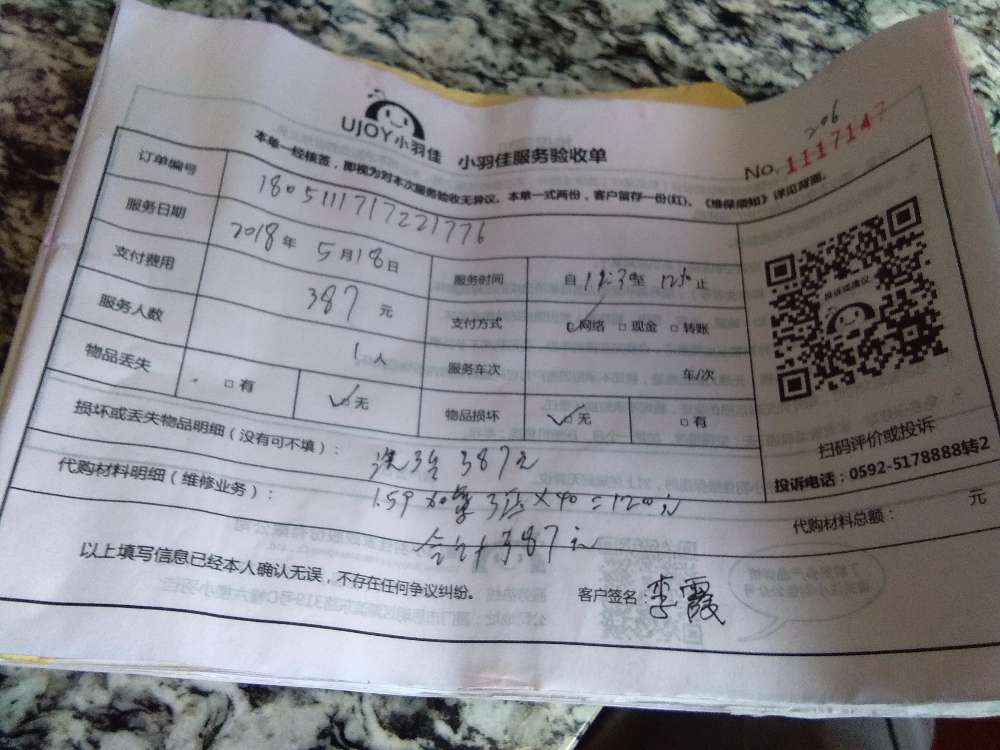 206
UJOY小羽佳 小羽佳服务验收单
No. 1117147
本单一经核签，即视为对本次服务验收无异议。本单一式两份，客户留存一份(红)。《维保须知》详见背面。
订单编号 1805111717221776
服务日期 2018年5月18日 服务时间 自 至 止
支付费用 387元 支付方式 网络 □现金 □转账
服务人数 1人 服务车次 车/次
物品丢失 □有 ✓□无 物品损坏 ✓□无 □有
损坏或丢失物品明细（没有可不填）： 387元
代购材料明细（维修业务）： 159 ×40=120元
代购材料总额： 元
合计387元
以上填写信息已经本人确认无误，不存在任何争议纠纷。 客户签名：李霞
投诉或建议
扫码评价或投诉
投诉电话：0592-5178888转2